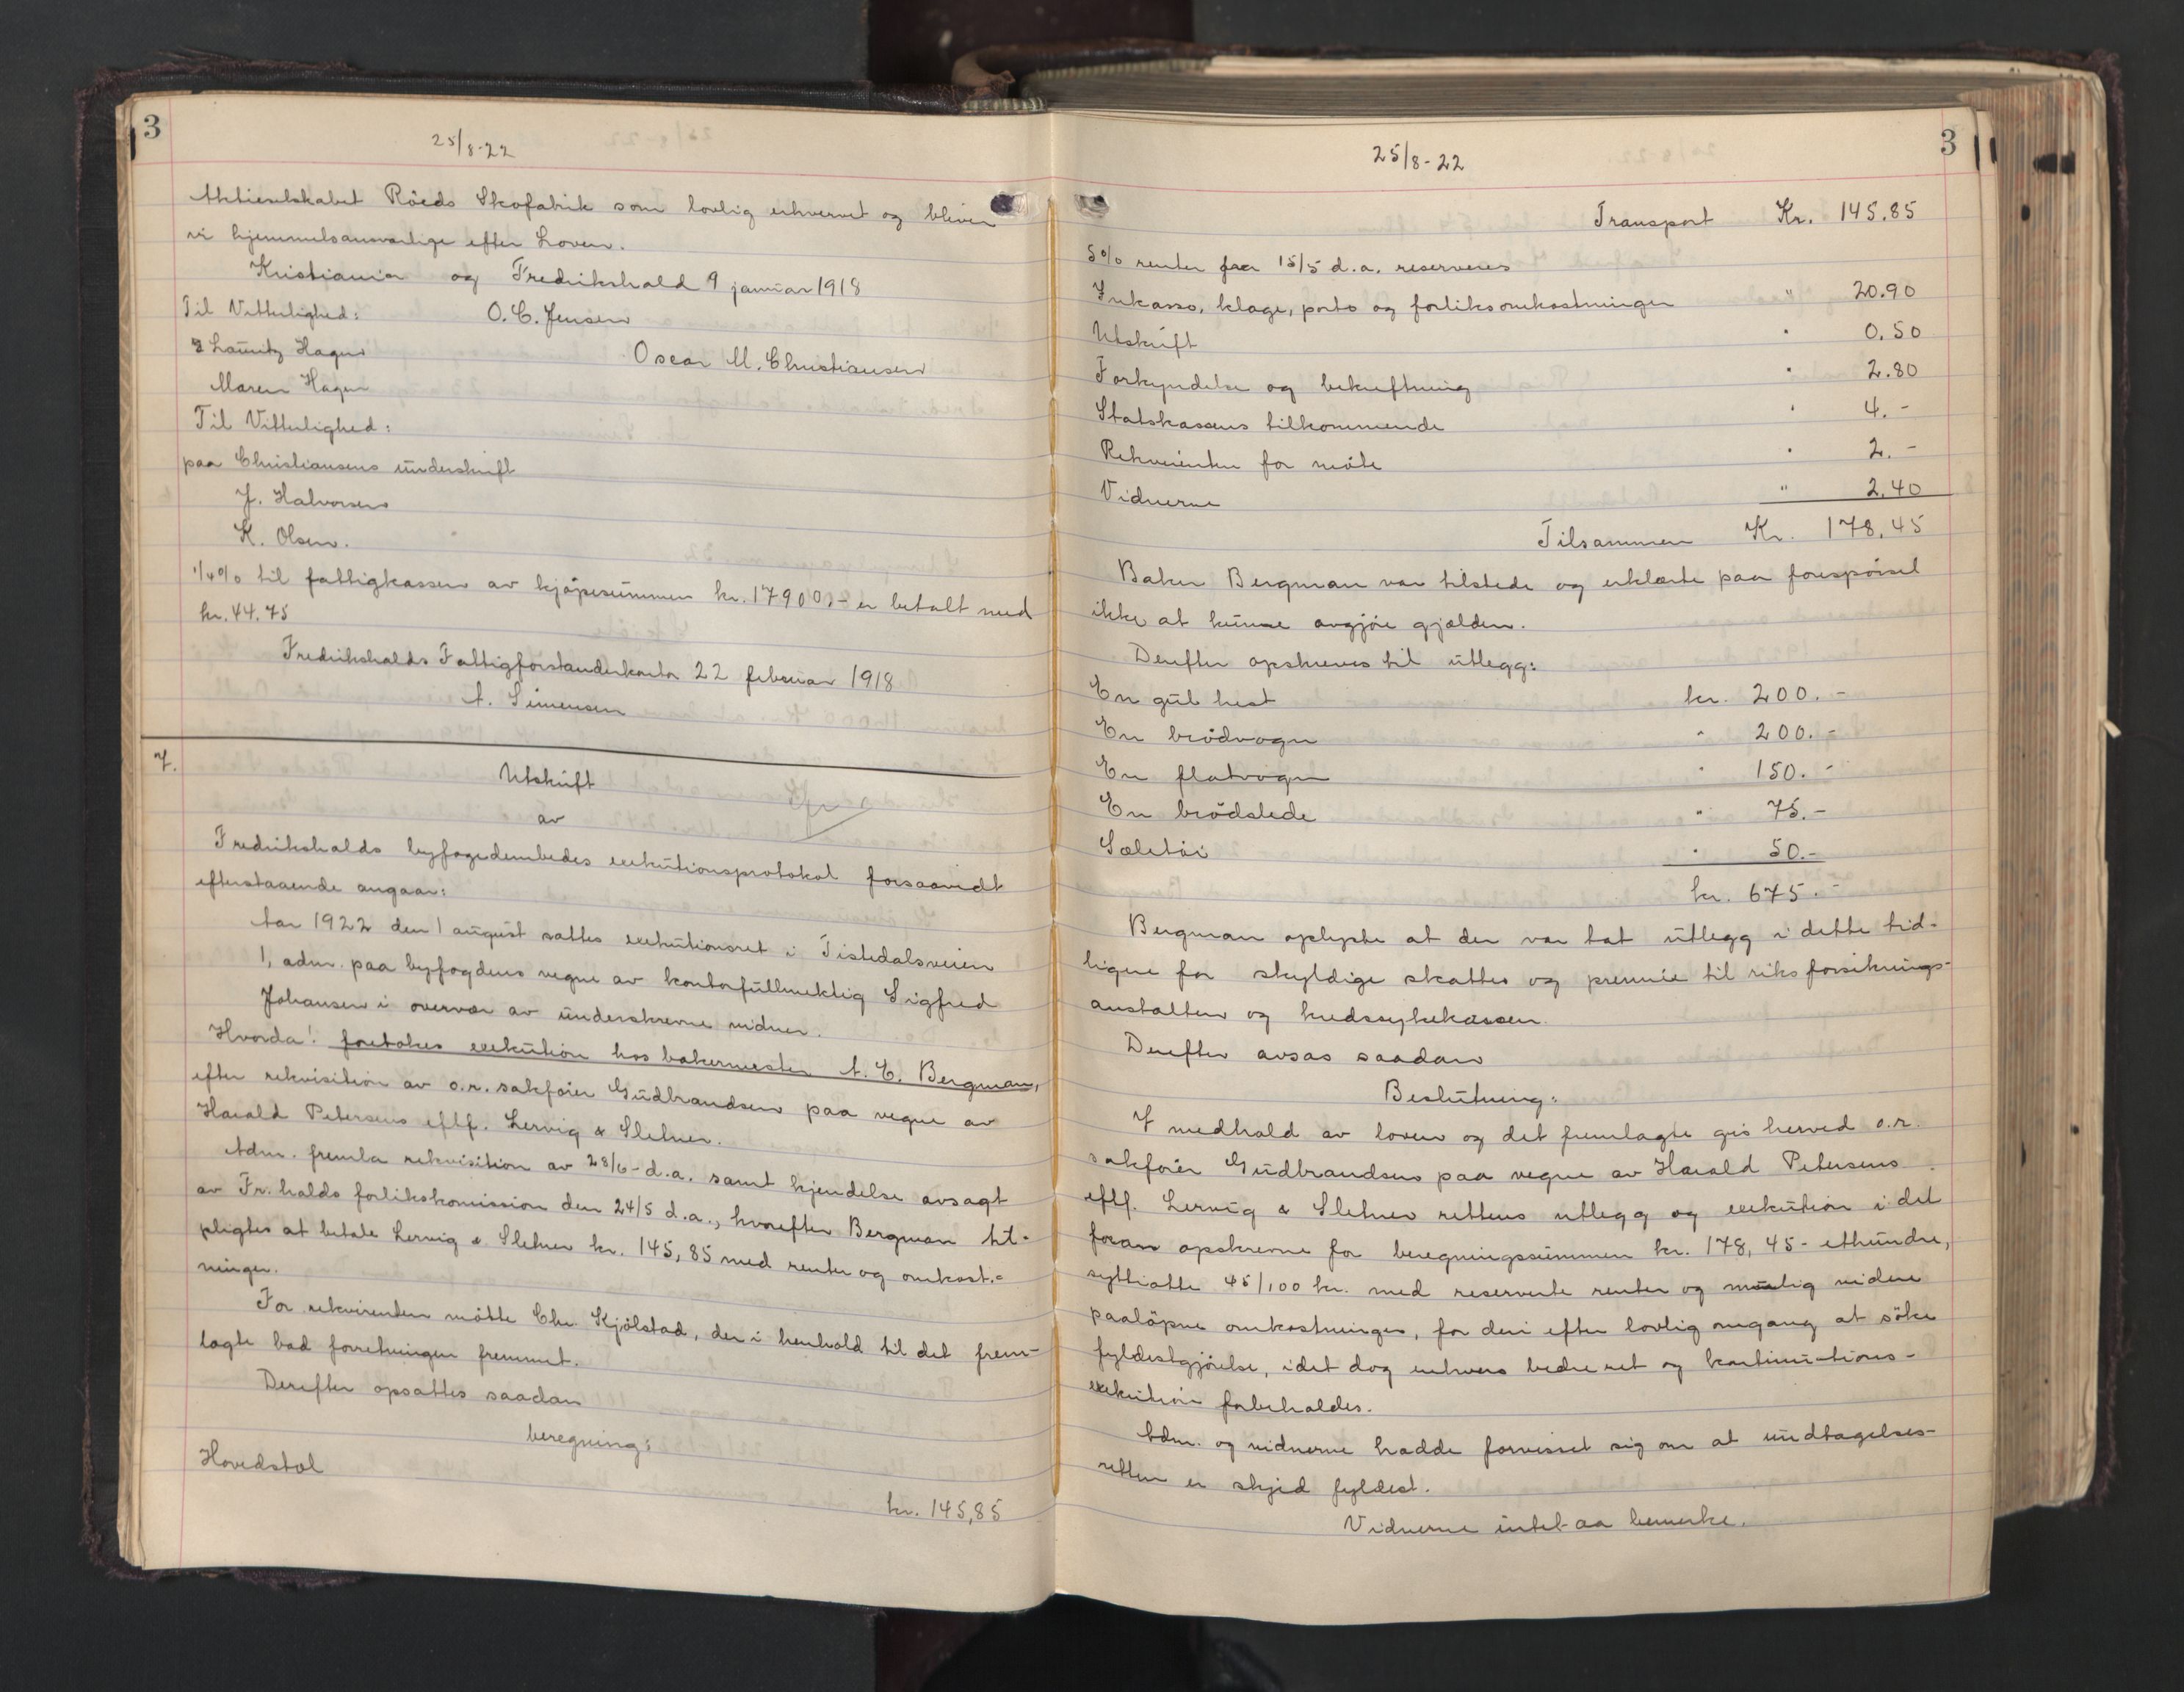 3
25/8-22
Aktieselskabet Röeds Skofabrik som lovlig erhvervet og bliver
vi hjemmelsansvarlige efter Loven.
Kristiania og Fredrikshald 9 januar 1918
Til Vitterlighed: O. C. Jensen
Lauritz Hagen Oscar M. Christiansen
Maren Hagen
Til Vitterlighed:
paa Christiansens underskrift
J. Halvorsen
K. Olsen.
1/4% til fattigkassen av kjöpesummen kr. 17900.- er betalt med
kr. 44.75
Fredrikshalds Fattigforstanderkontor 22 februar 1918
A. Simensen
7.
Utskrift
av
Fredrikshalds byfogedembedes exekutionsprotokol forsaavidt
efterstaaende angaar:
Aar 1922 den 1 august sattes exekutionsret i Tistedalsveien
1, adm. paa byfogdens vegne av kontorfullmektig Sigfred
Johansen i overvær av underskrevne vidner.
Hvorda: foretokes exekution hos bakermester A. E. Bergman,
efter rekvisition av o.r. sakförer Gudbrandsen paa vegne av
Harald Petersens eftf. Lervig & Sletner.
Adm. fremla rekvisition av 28/6- d.a. samt kjendelse avsagt
av Fr.halds forlikskomission den 24/5 d.a., hvorefter Bergman til-
pligtes at betale Lervig & Sletner kr. 145,85 med renter og omkost-
ninger.
For rekvirenten mötte Chr. Kjölstad, der i henhold til det frem-
lagte bad forretningen fremmet.
Derefter opsattes saadan
beregning:
Hovedstol kr. 145,85
3
25/8-22
Transport Kr. 145.85
5% renter fra 15/5 d.a. reserveres
Inkasso, klage, porto og forliksomkostninger " 20.90
Utskrift " 0.50
Forkyndelse og bekreftning " 2.80
Statskassens tilkommende " 4.-
Rekvirenten for möte " 2.-
Vidnerne " 2.40
Tilsammen Kr. 178,45
Baker Bergman var tilstede og erklærte paa forespörsel
ikke at kunne avgjöre gjælden.
Derefter opskreves til utlegg:
En gul hest kr. 200.-
En brödvogn " 200.-
En flatvogn " 150.-
En brödslede " 75.-
Sæletöi " 50.-
kr. 675.-
Bergman oplyste at der var tat utlegg i dette tid-
ligere for skyldige skatter og premie til riksforsikrings-
anstalten og kredssykekassen.
Derefter avsas saadan
Beslutning:
I medhold av loven og det fremlagte gis herved o.r.
sakförer Gudbrandsen paa vegne av Harald Petersens
eftf. Lervig & Sletner rettens utlegg og exekution i det
foran opskrevne for beregningssummen kr. 178,45- ethundre,
syttiatte 45/100 kr. med reserverte renter og mulig videre
paalöpne omkostninger, for deri efter lovlig omgang at söke
fyldestgjörelse, idet dog enhvers bedre ret og kontinuations-
exekution forbeholdes.
Adm. og vidnerne hadde forvisset sig om at undtagelses-
retten er skjed fyldest.
Vidnerne intet aa bemerke.